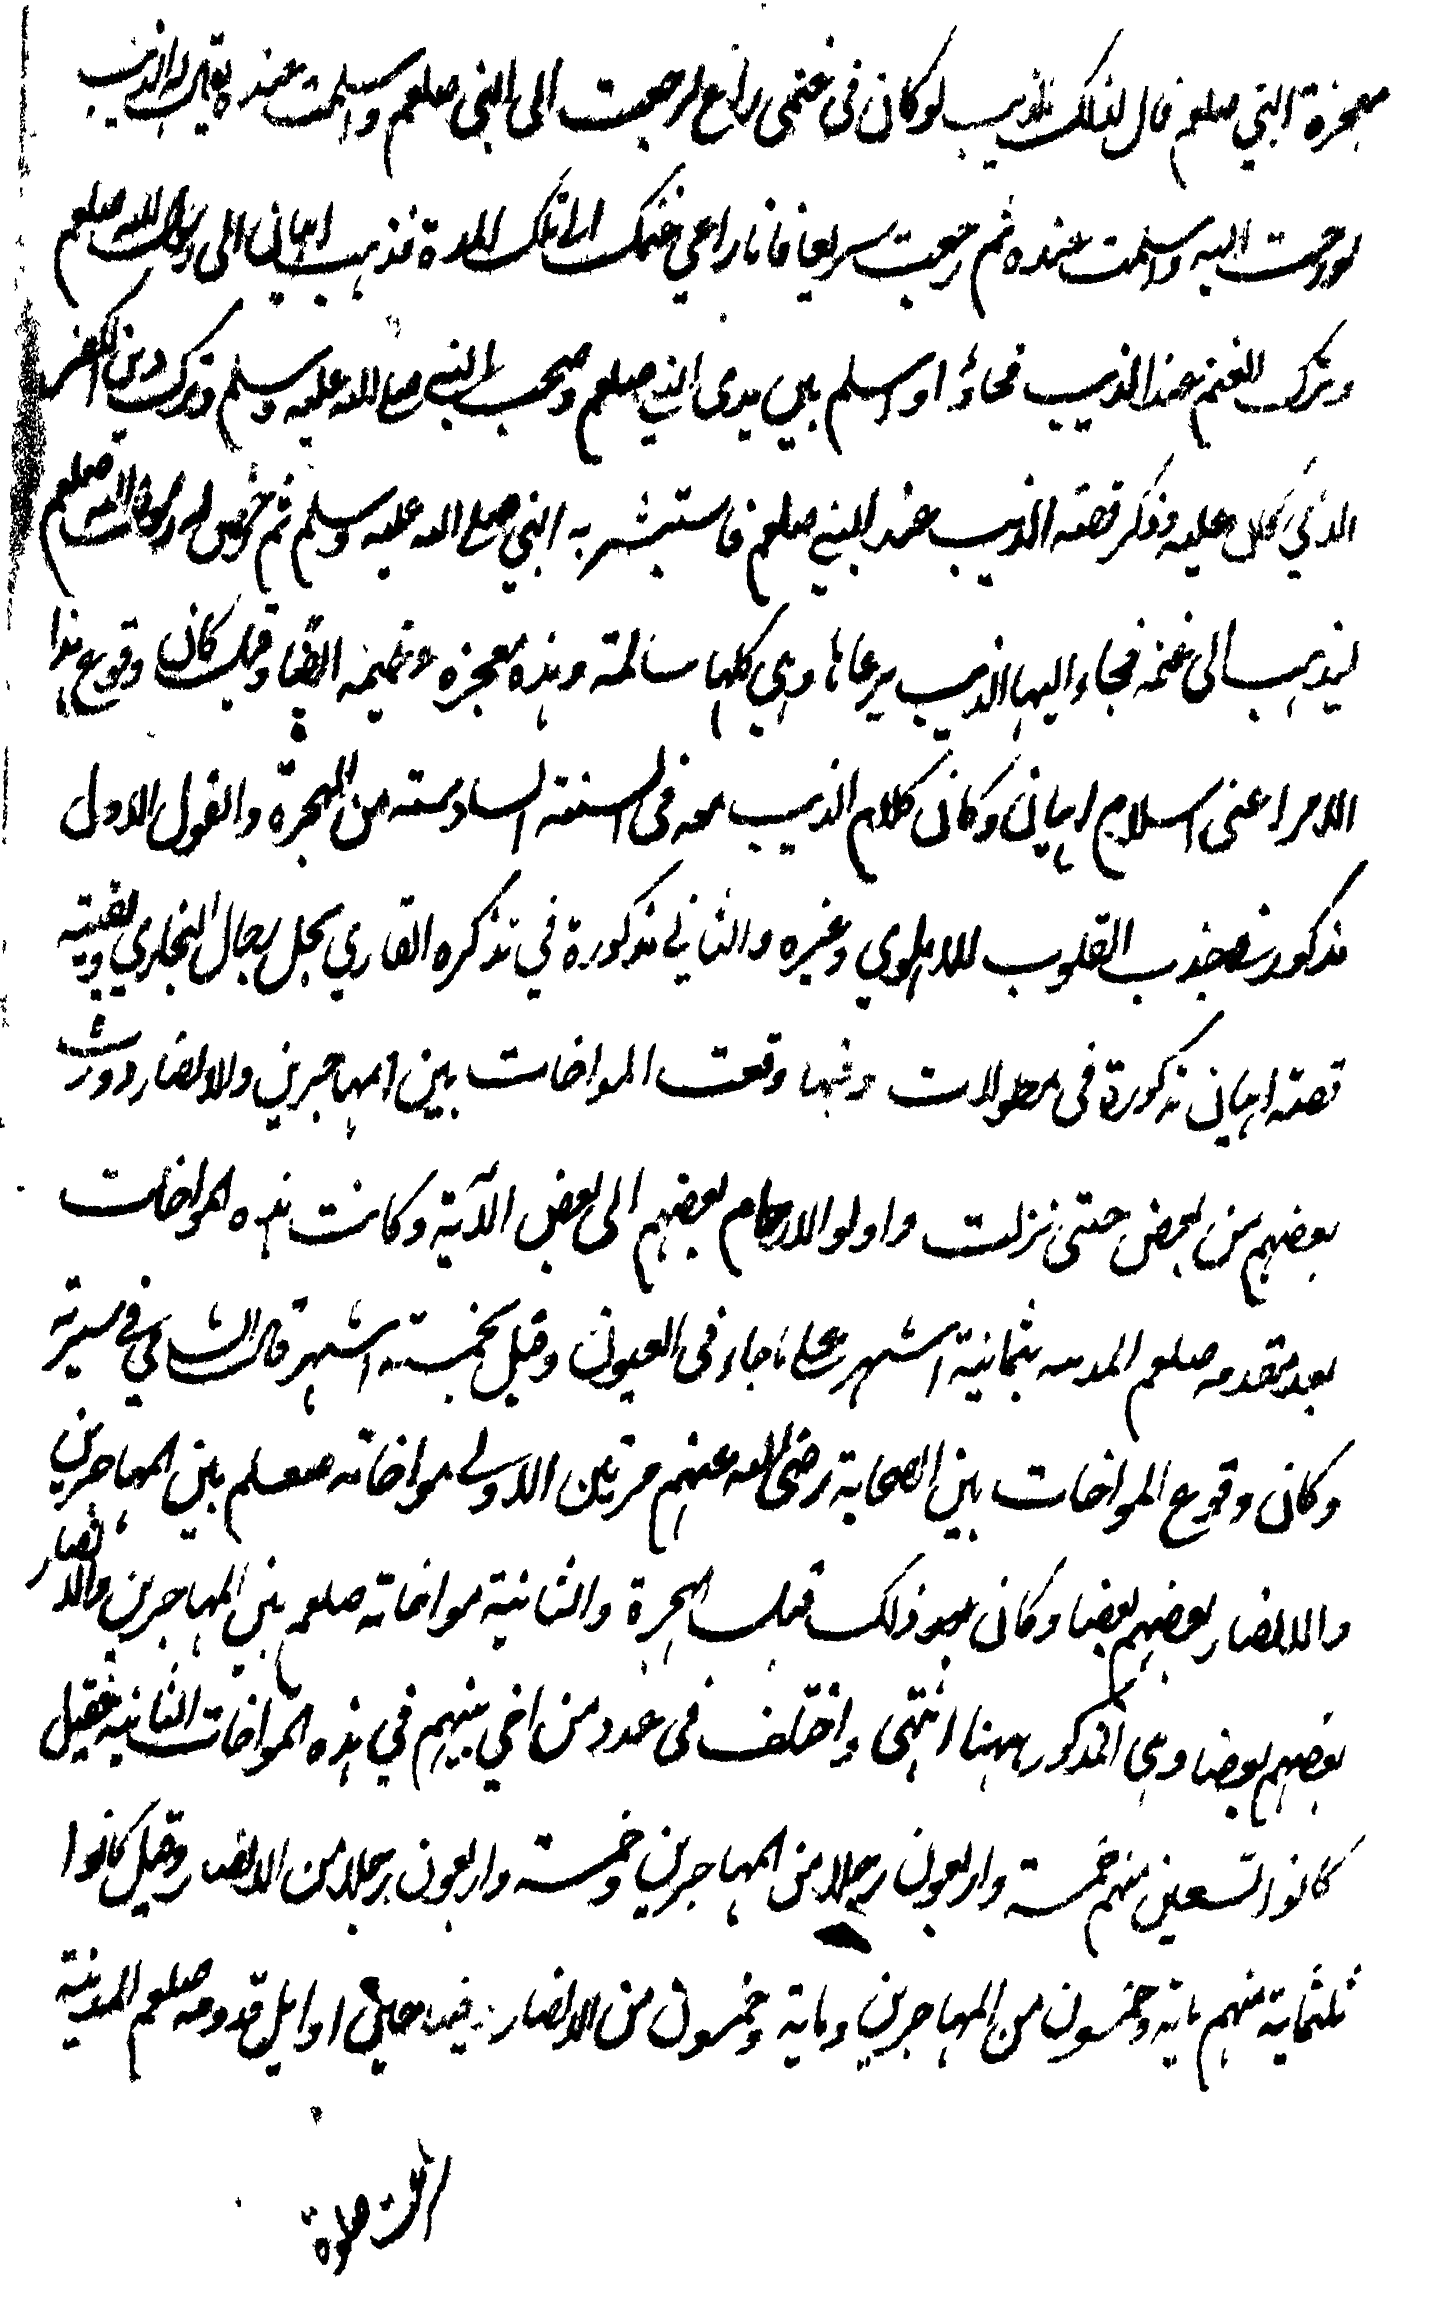 معجزة النبي صلعم قال لذلك الذيب لو كان في غنمي راع لرجعت الى النبي صلعم واسلمت عنده فقال له الذيب
لو رحت اليه واسلمت عنده ثم رجعت سريعا فانا راعي غنمك الى تلك المدة فذهب اهبان الى رسول الله صلعم
وترك الغنم عند الذيب فجاؤا واسلم بين يدى النبي صلعم وصحب النبي صلى الله عليه وسلم وترك دين الكفر
الذي كان عليه وذكر قصة الذيب عند النبي صلعم فاستبشر به النبي صلى الله عليه وسلم ثم رخص له رسول الله صلعم
ليذهب الى غنمه فجاء اليها الذيب يرعاها وهي كلها سالمة وهذه معجزه عظيمه ايضا وقيل كان وقوع هذا
الامر اعنى اسلام اهبان وكان كلام الذيب معه فى السنة السادسة من الهجرة والقول الاول
مذكور في جذب القلوب للدهلوي وغيره والثاني مذكورة في تذكره القاري بحل رجال البخاري وبقية
قصة اهبان مذكورة فى مطولات وفيها وقعت المواخات بين المهاجرين والانصار وورث
بعضهم من بعض حتى نزلت واولوا الارحام بعضهم الى بعض الآية وكانت هذه المواخات
بعد مقدمه صلعم المدينه بثمانية اشهر على ما جاء فى العيون وقيل بخمسة اشهر قال الشامي في سيرته
وكان وقوع المواخات بين الصحابة رضى الله عنهم مرتين الاولى مواخاته صلعم بين المهاجرين
والانصار بعضهم بعضا وكان ذلك قبل الهجرة والثانية مواخاته صلعم بين المهاجرين والانصار
بعضهم بعضا وهي المذكور ههنا انتهى واختلف فى عدد من اخي بينهم في هذه المواخات الثانيه فقيل
كانوا تسعين منهم خمسة واربعون رجلا من المهاجرين وخمسة واربعون رجلا من الانصار وقيل كانوا
ثلثماية منهم ماية وخمسون من المهاجرين وماية وخمسون من الانصار وفيها حين اوايل قدومه صلعم المدينة